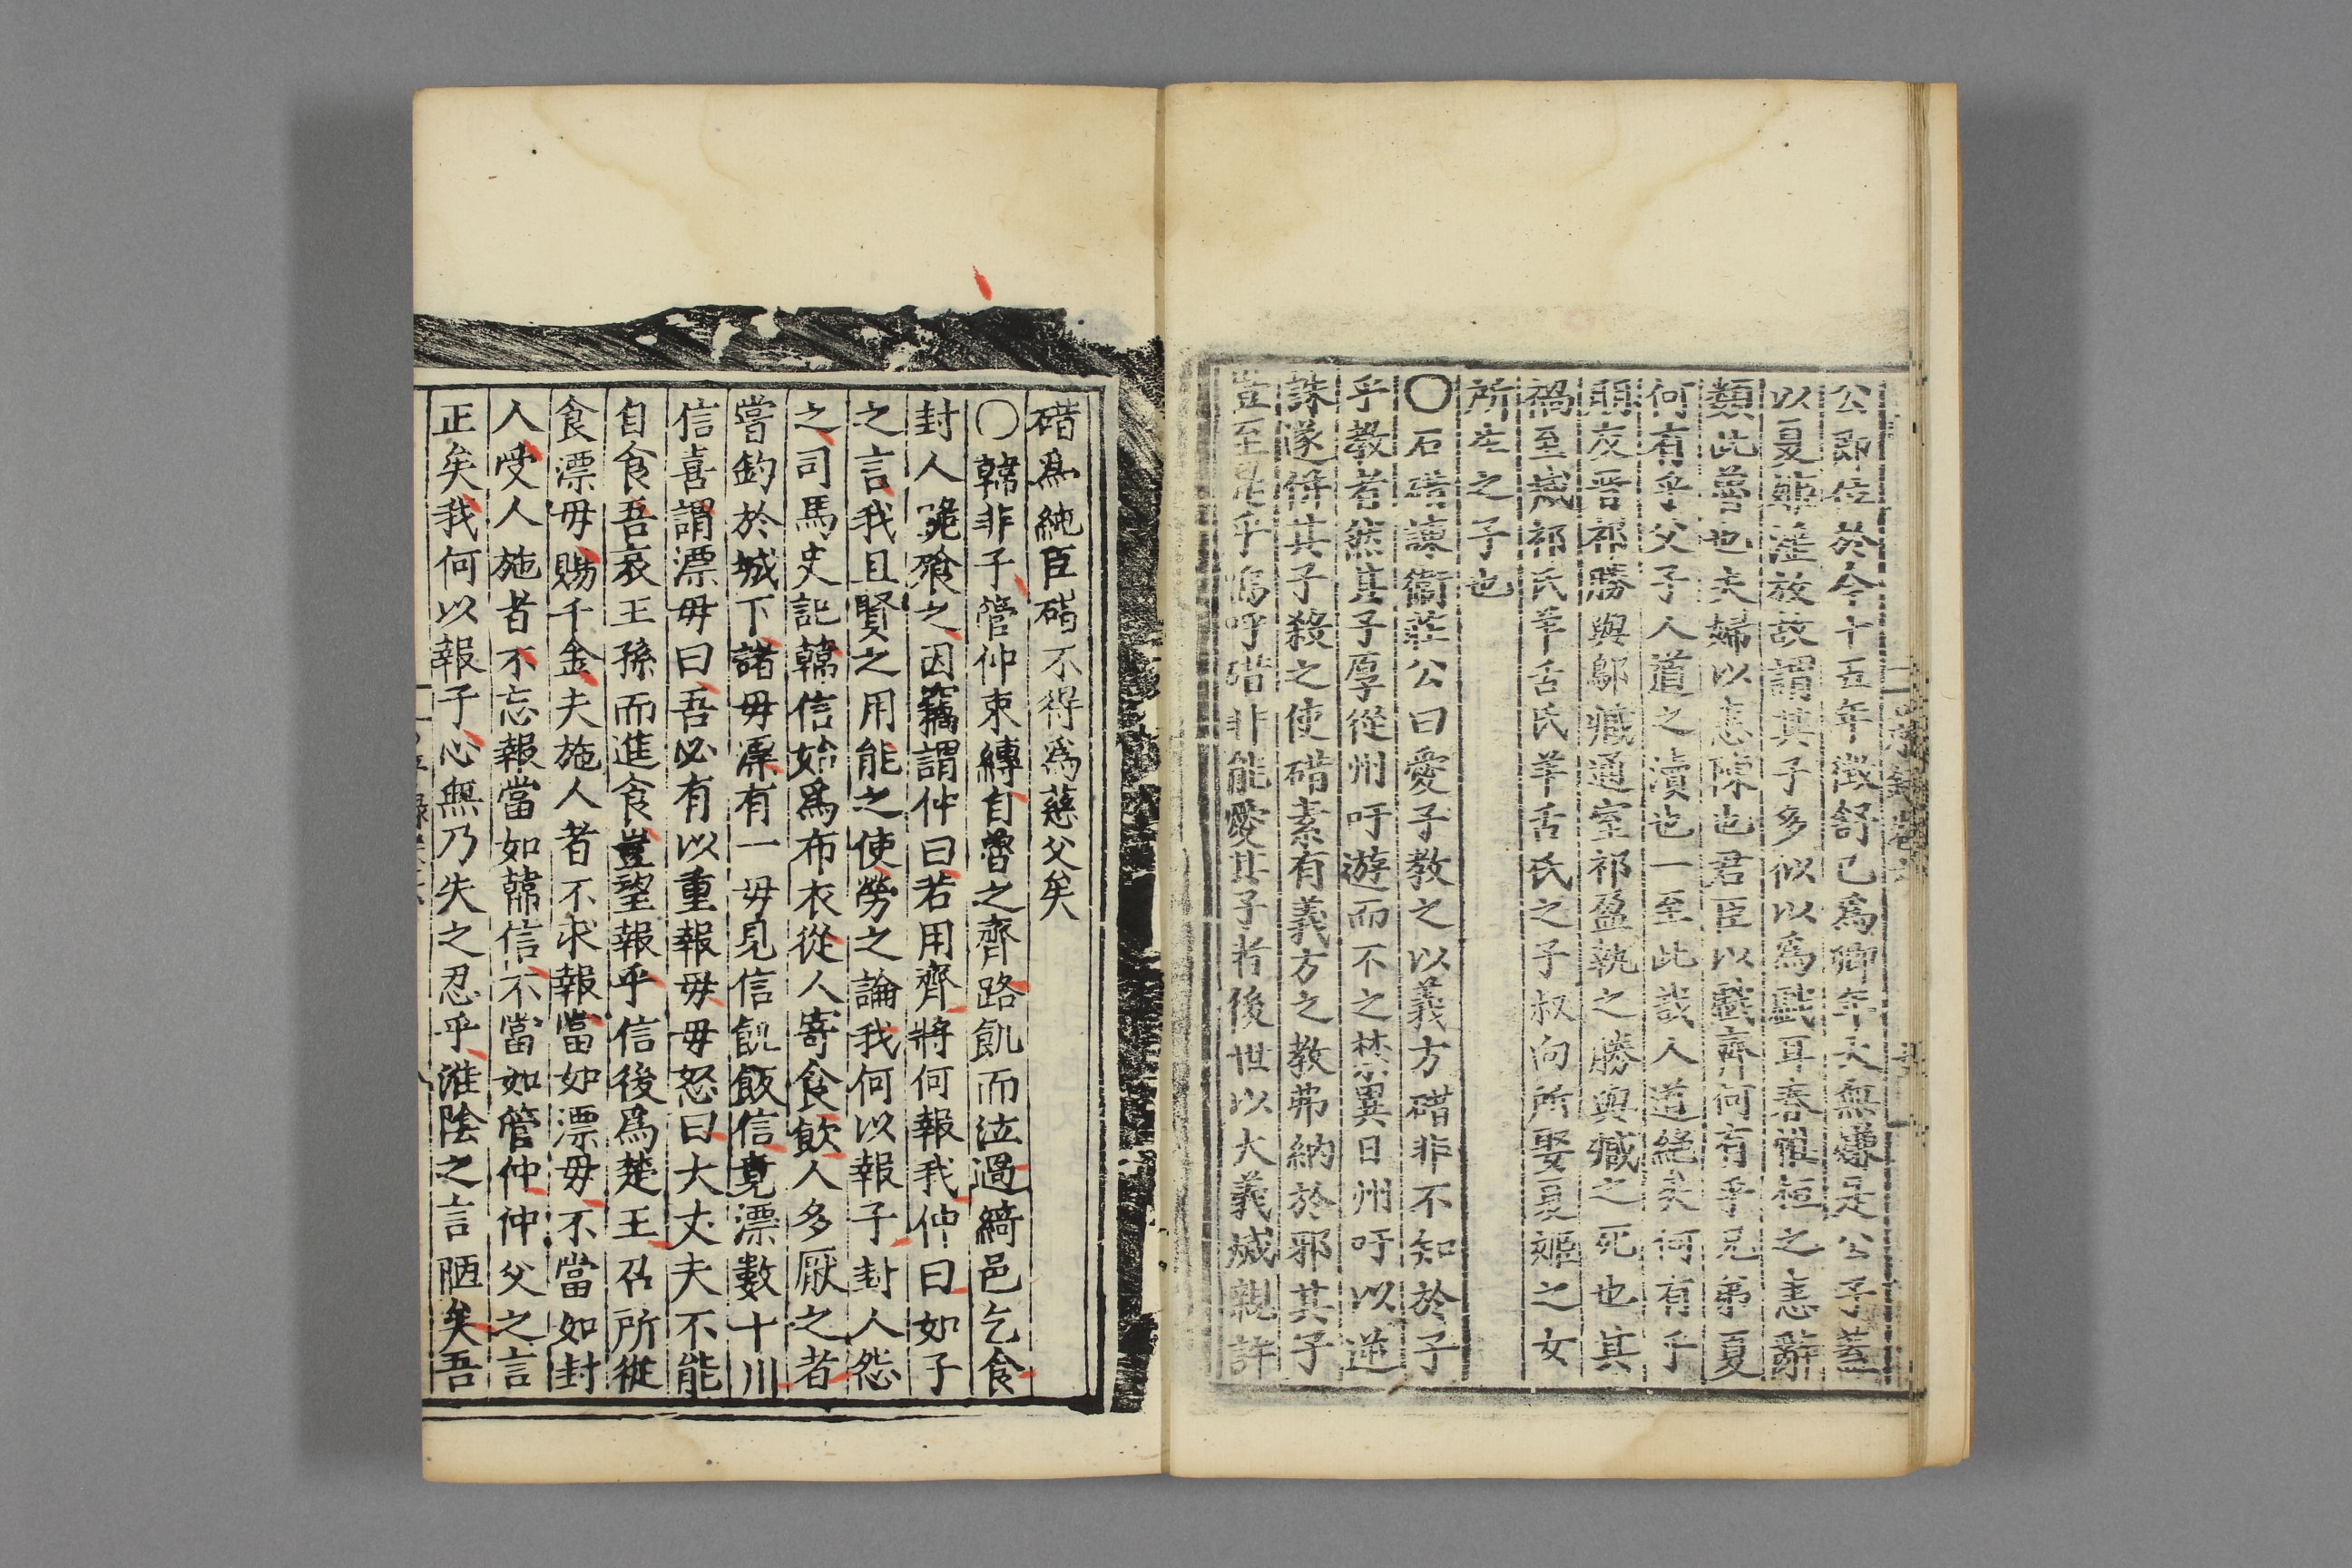 公即位於今十五年徵舒已爲卿年大無嫌是公子蓋
以夏姬淫放故謂其子多似以爲戲耳春惟桓之恚辭
類此嘗也夫婦以恚陳也君臣以戲齊何有乎兄弟夏
何有乎父子人道之瀆也一至此哉人道絕矣何有乎
朋友晋祁勝與鄔臧通室祁盈執之勝與臧之死也其
禍至滅祁氏羊舌氏羊舌氏之子叔向所娶夏姬之女
所生之子也
〇石碏諫衛莊公曰愛子教之以義方碏非不知於子
乎教者然其子厚從州吁遊而不之禁異日州吁以逆
誅遂併其子殺之使碏素有義方之教弗納於邪其子
豈至是乎嗚呼碏非能愛其子者後世以大義滅親許
碏爲純臣碏不得爲慈父矣
〇韓非子管仲束縛自魯之齊路飢而泣過綺邑乞食
封人跪飱之因竊謂仲曰若用齊將何報我仲曰如子
之言我且賢之用能之使勞之論我何以報子封人怨
之司馬史記韓信始爲布衣從人寄食飲人多厭之者
嘗釣於城下諸毋漂有一毋見信飢飯信竟漂數十川
信喜謂漂毋曰吾必有以重報毋毋怒曰大丈夫不能
自食吾哀王孫而進食豈望報乎信後爲楚王召所從
食漂毋賜千金夫施人者不求報當如漂毋不當如封
人受人施者不忘報當如韓信不當如管仲仲父之言
正矣我何以報子心無乃失之忍乎淮陰之言陋矣吾